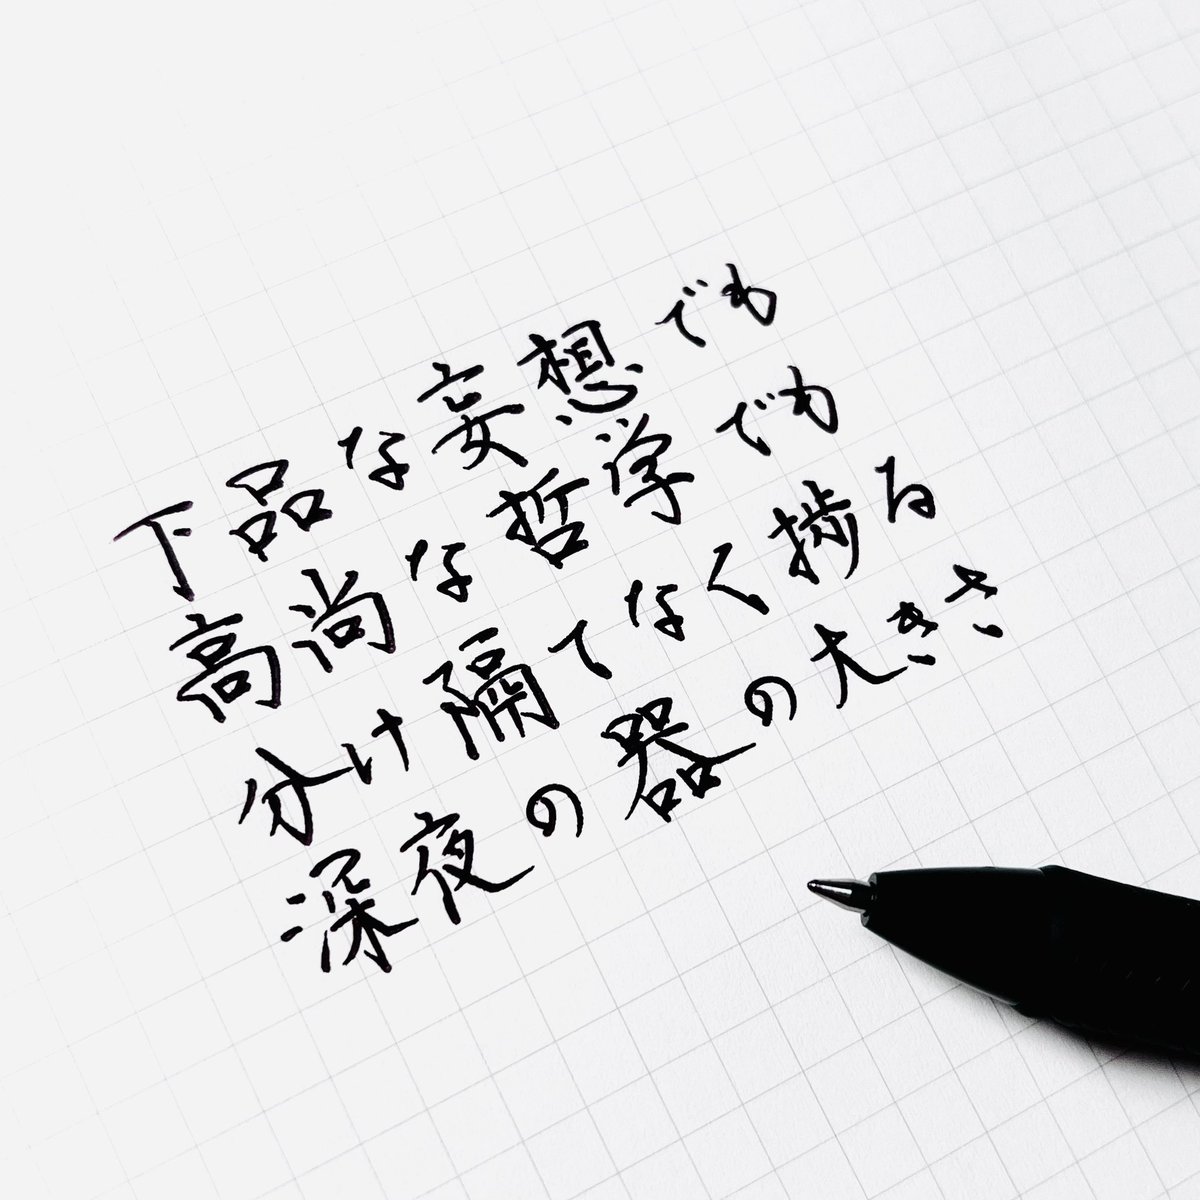 下品な妄想でも
高尚な哲学でも
分け隔てなく捗る
深夜の器の大きさ